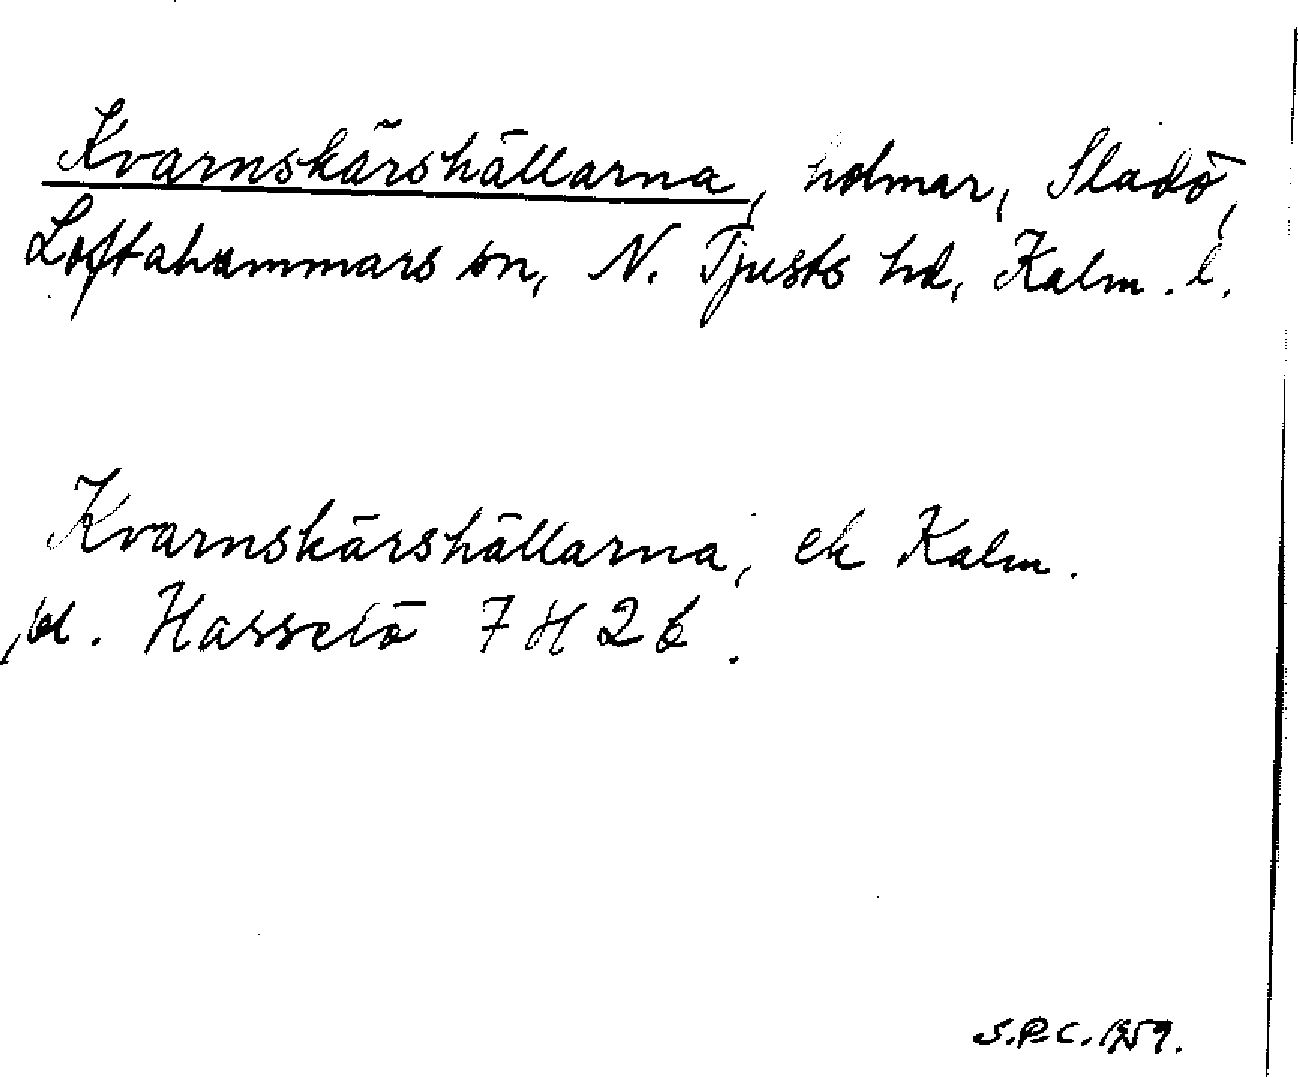 Kvarnskärshällarna, holmar, Sladö,
Loftahammars sn, N. Tjusts hd, Kalm. l.
Kvarnskärshällarna, ek Kalm.
bl. Hasselö 7 H 2 b.
S.P.C. 1959.